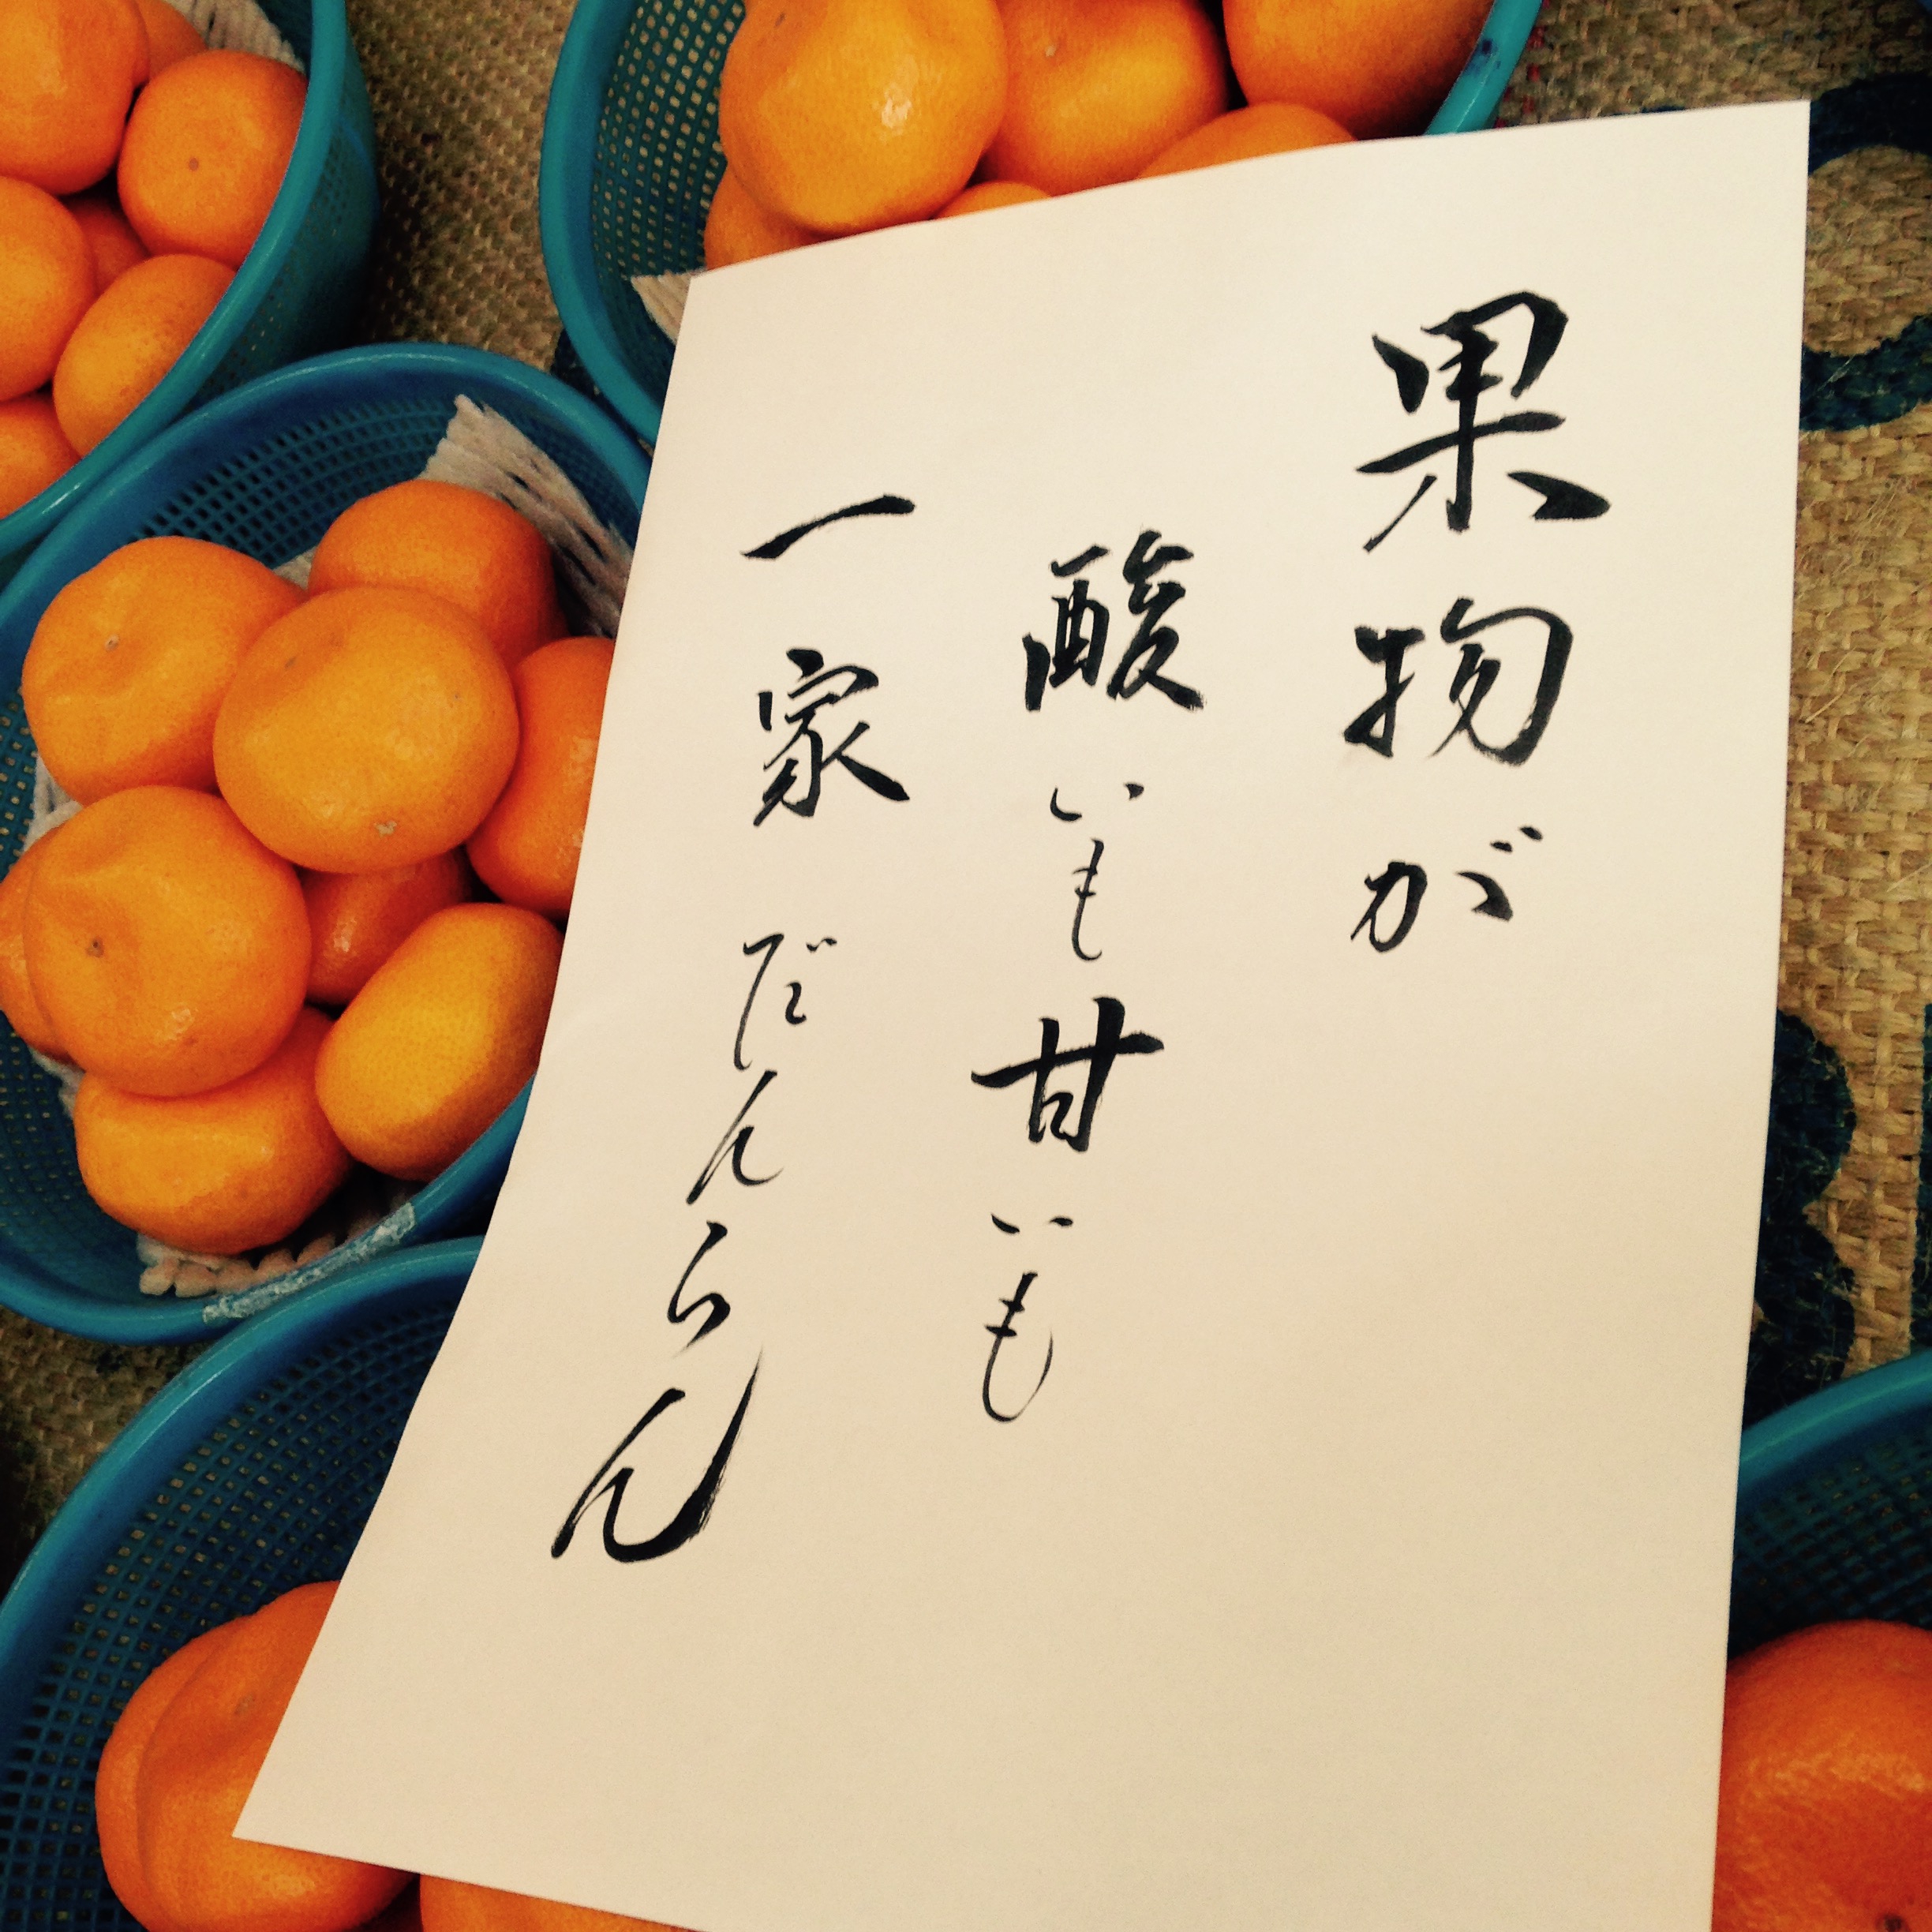 果物が
酸いも甘いも
一家だんらん